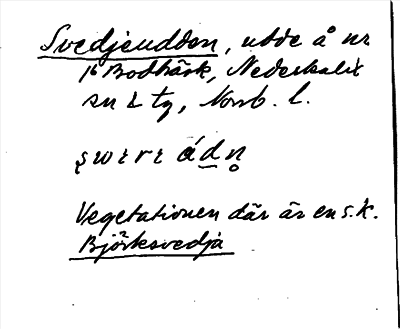 Svedjeudden, udde å nr
16 Bodträsk, Nederkalix
sn o tg, Norrb. l.
ádn
Vegetationen där är en s.k.
Björksvedja